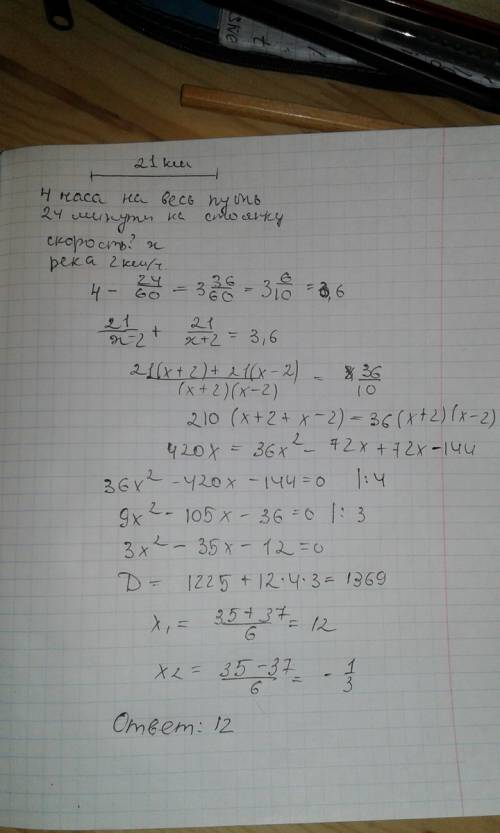 21 км
4 часа на весь путь
24 минуты на стоянку
скорость? x
река 2 км/ч.
4 - 24/60 = 3 36/60 = 3 6/10 = 3,6
21/(x-2) + 21/(x+2) = 3,6
(21(x+2) + 21(x-2))/((x+2)(x-2)) = 36/10
210 (x+2+x-2) = 36(x+2)(x-2)
420x = 36x² - 72x + 72x - 144
36x² - 420x - 144 = 0 |:4
9x² - 105x - 36 = 0 |:3
3x² - 35x - 12 = 0
D = 1225 + 12·4·3 = 1369
x₁ = (35+37)/6 = 12
x₂ = (35-37)/6 = -1/3
Ответ: 12